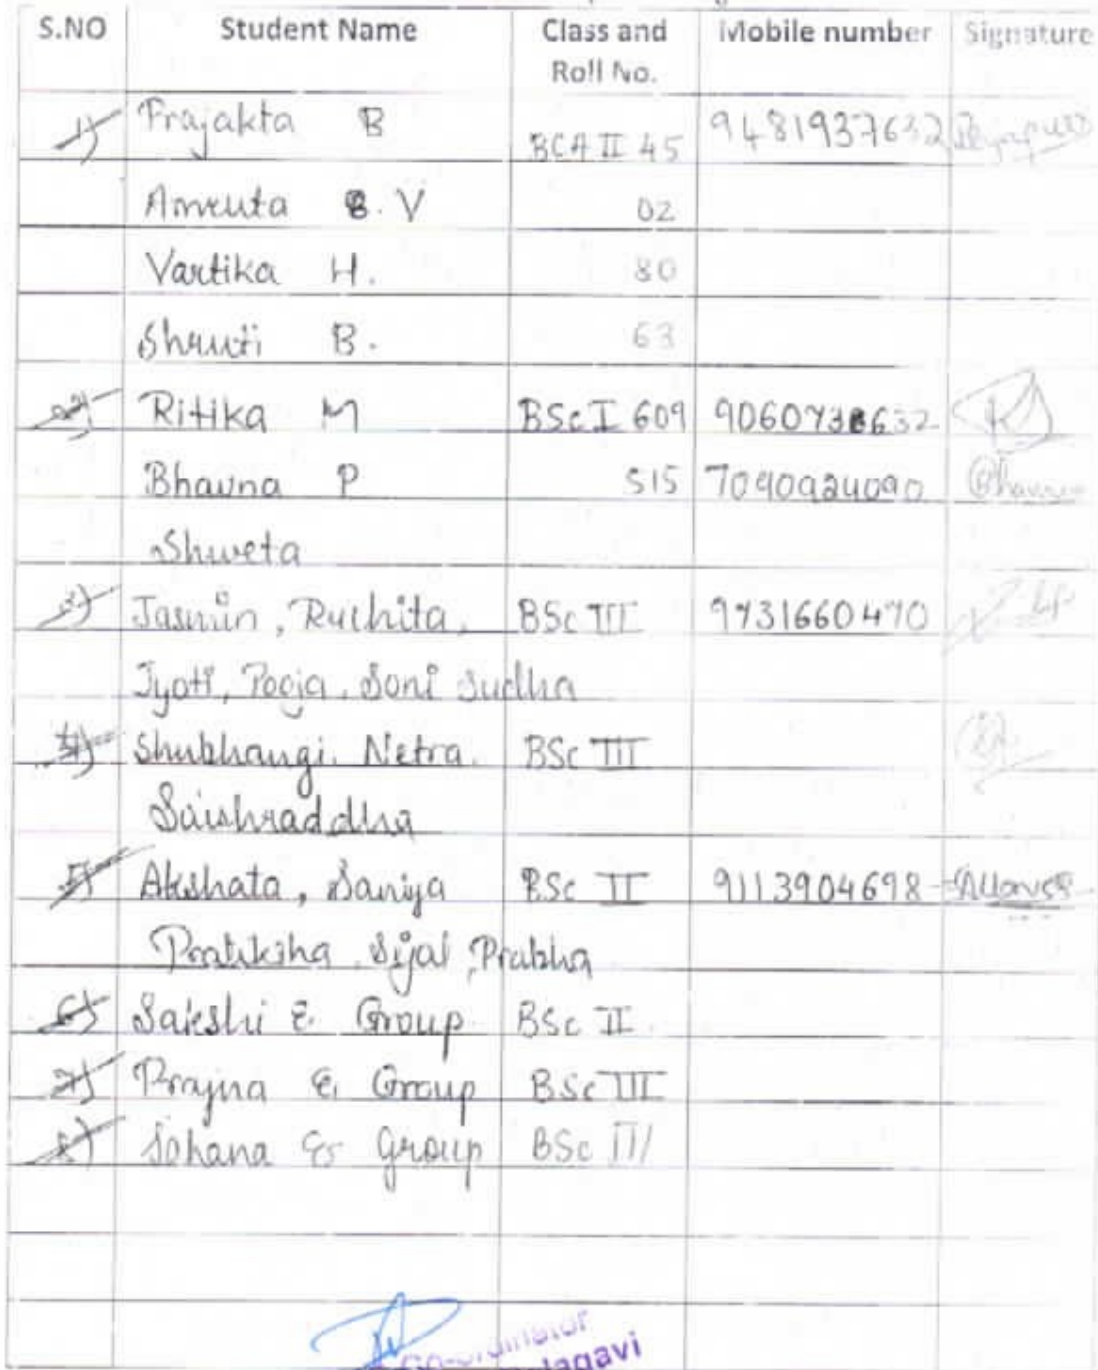 S.NO Student Name Class and Roll No. Mobile number Signature
1) Prajakta B BCA II 45 9481937632
Amruta B. V 02
Vartika H. 80
Shruti B. 63
2) Ritika M BSc I 609
Bhavna P 515 7090924090 Bhavna
Shweta
3) Jasmin, Ruchita, BSc III 9731660470
Jyoti, Pooja, Soni Sudha
4) Shubhangi, Netra. BSc III
Saishraddha
5) Akshata, Saniya BSc II 9113904698
Pratiksha, Sijal, Prabha
6) Sakshi & Group BSc II
7) Prajna & Group BSc III
8) Sohana & Group BSc III
Co-ordinator